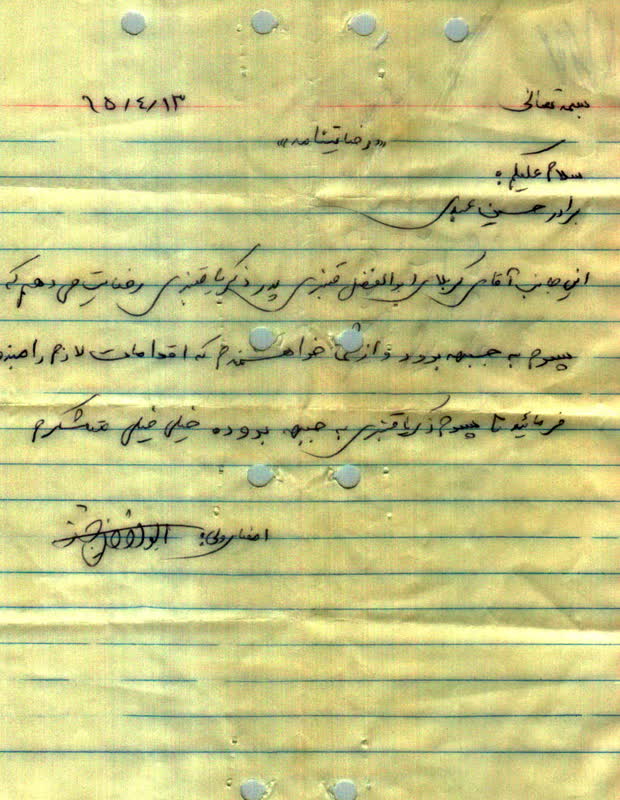 بسمه تعالی
٦٥/٤/١٣
«رضایتنامه»
سلام علیکم:
برادر حسین عبدی
این جانب آقای کربلای ابوالفضل قنبری پدر ذکریا قنبری رضایت می دهم که
پسرم به جبهه برود و از شما خواهشمندم که اقدامات لازم را
فرمائید تا پسرم ذکریا قنبری به جبهه برود خیلی خیلی متشکرم
امضا ولی: